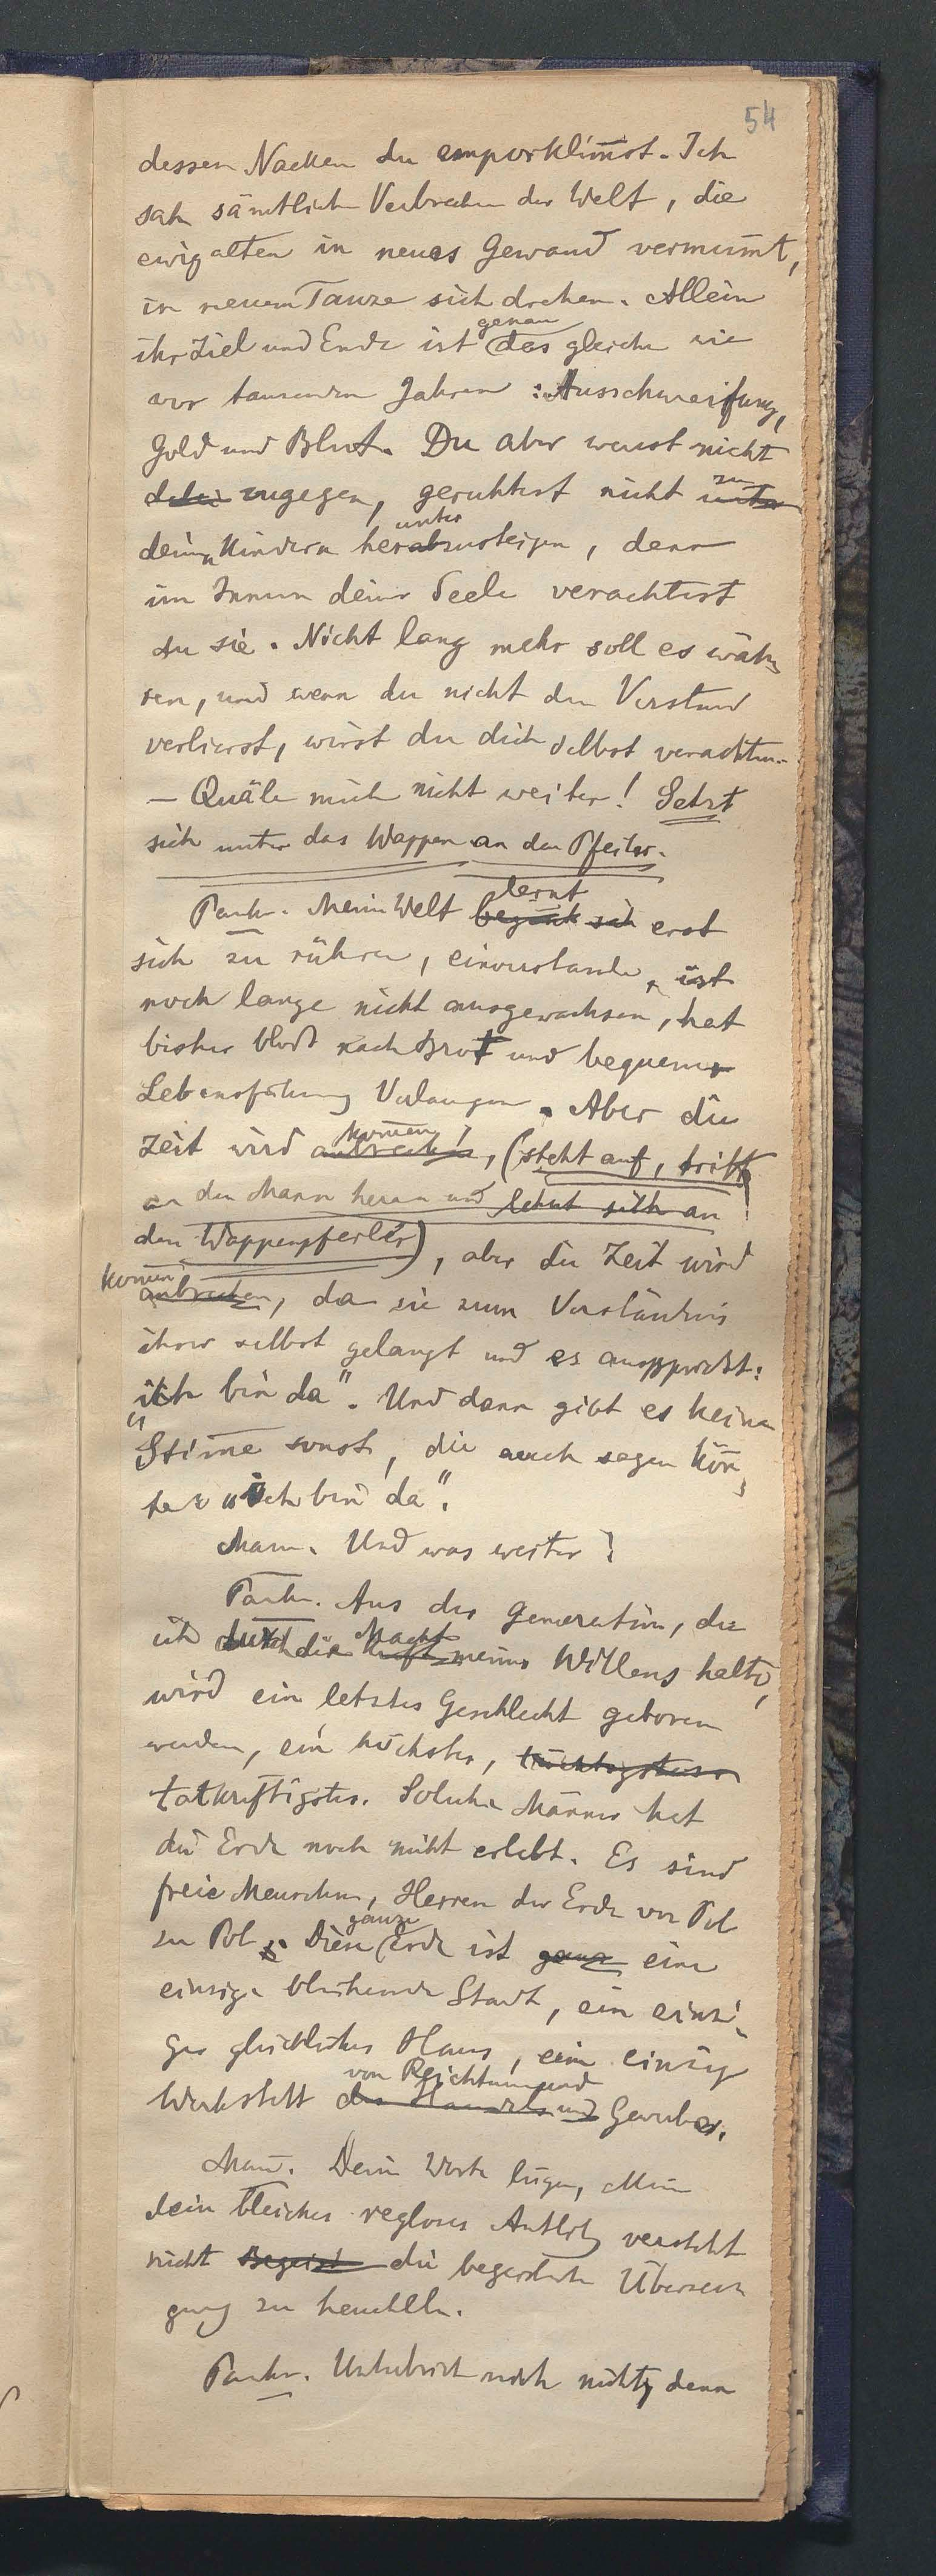 54
dessen Nacken du emporklim̄st. Ich
sah sämtliche Verbrechen der Welt, die
ewig alten in neues Gewand vermum̄t,
in neuem Tanze sich drehen. Allein
genau
ihr Ziel und Ende ist das gleiche wie
vor tausenden Jahren: Ausschweifung,
Gold und Blut. Du aber warst nicht
zu
dabei zugegen, geruhtest nicht unter
unter
deinen Kindern herabzusteigen, denn
im Innern deiner Seele verachtest
du sie. Nicht lang mehr soll es wäh-
ren, und wenn du nicht den Verstand
verlierst, wirst du dich selbst verachten.
— Quäle mich nicht weiter! Setzt
sich unter das Wappen an den Pfeiler.
lernt
Pankr. Meine Welt beginnt sich erst
sich zu rühren, einverstanden, ist
noch lange nicht ausgewachsen, hat
bisher bloß nach Brot und bequemer
Lebensführung Verlangen. Aber die
kom̄en
Zeit wird anbrechen, (steht auf, tritt
an den Mann heran und lehnt sich an
den Wappenpfeiler), aber die Zeit wird
kom̄en
anbrechen, da sie zum Verständnis
ihrer selbst gelangt und es ausspricht:
„ich bin da". Und dann gibt es keine
Stim̄e sonst, die auch sagen kön̄-
te: „ich bin da".
Mann. Und was weiter?
Pankr. Aus der Generation, die
Macht
ich durch die Kraft meines Willens halte,
wird ein letztes Geschlecht geboren
werden, ein höchstes, tüchtigstes
tatkräftigstes. Solche Männer hat
die Erde noch nicht erlebt. Es sind
freie Menschen, Herren der Erde von Pol
ganze
zu Pol. Diese Erde ist ganz eine
einzige blühende Stadt, ein einzi-
ges glückliches Haus, eine einzige
von Reichtum und
Werkstatt des Handels und Gewerbes.
Mann. Deine Worte lügen, allein
dein bleiches regloses Antlitz versteht
nicht Begeist die begeisterte Überzeu-
gung zu heucheln.
Pankr. Unterbrich mich nicht, denn